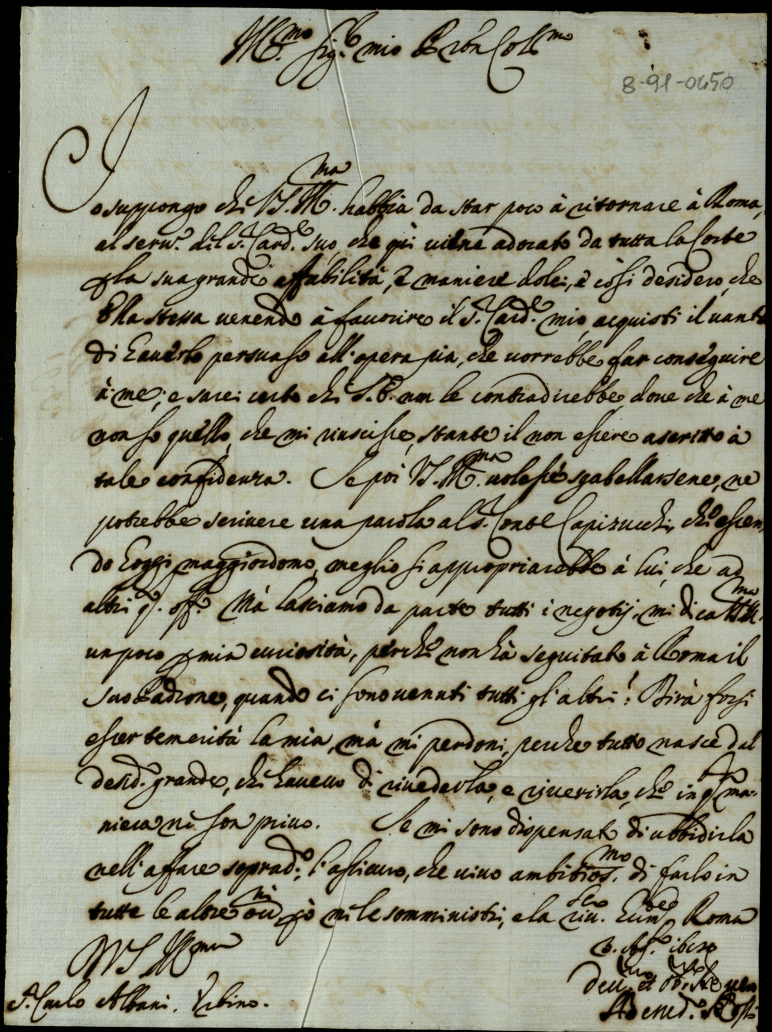 Ill.mo Sig.r mio P.ron Coll.mo
8-91-0450
Io suppongo che V.S. Ill.ma habbia da star poco à ritornare à Roma,
al serv.o del S. Card.e suo, che quì viene adorato da tutta la Corte
p la sua grande affabilità, e maniere dolci, e così desidero, che
Ella stessa venendo à favorire il S. Card.e mio acquisti il vanto
di haverlo persuaso all'opera pia, che vorrebbe far conseguire
à me; e sarei certo che S.E. non le contradirebbe dove che à me
non so quello, che mi riuscisse, stante il non essere ascritto à
tale confidenza. Se poi V.S. Ill.ma volesse sgabellarsene, ne
potrebbe scrivere una parola al S. Conte Capizucchi, che essen
do hoggi maggiordomo, meglio si appropriarebbe à lui, che ad
altri q. off.o Mà lasciamo da parte tutti i negotij, mi dica V.S. Ill.ma
un poco p mia curiosità, perche non hà seguitato à Roma il
suo Padrone, quando ci sono venuti tutti gl'altri? Dirà forsi
esser temerità la mia, mà mi perdoni, perche tutto nasce dal
desid.o grande, che havevo di rivederla, e riverirla, che in q.a ma-
niera ne son privo. Se mi sono dispensato di ubbidirla
nell'affare soprad.o, l'assicuro, che vivo ambitios.mo di farlo in
tutte le altre, p ciò me le somministri, e la riv. Roma
D V.S. Ill.ma
S. Carlo Albani. Urbino.
Dev.mo et Obl.mo Ser.re vero
Bened.o